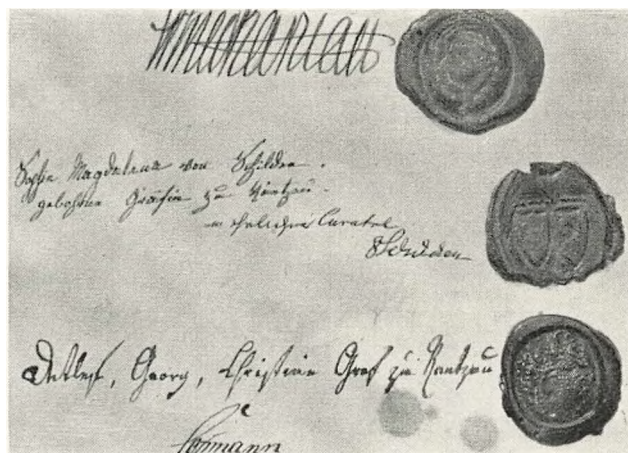 Sophie Magdalena von Schilden.
gebohrne Gräfin zu Rantzau.
in ehelicher Curatel
Schilden
Detlef, Georg, Christian Graf zu Rantzau